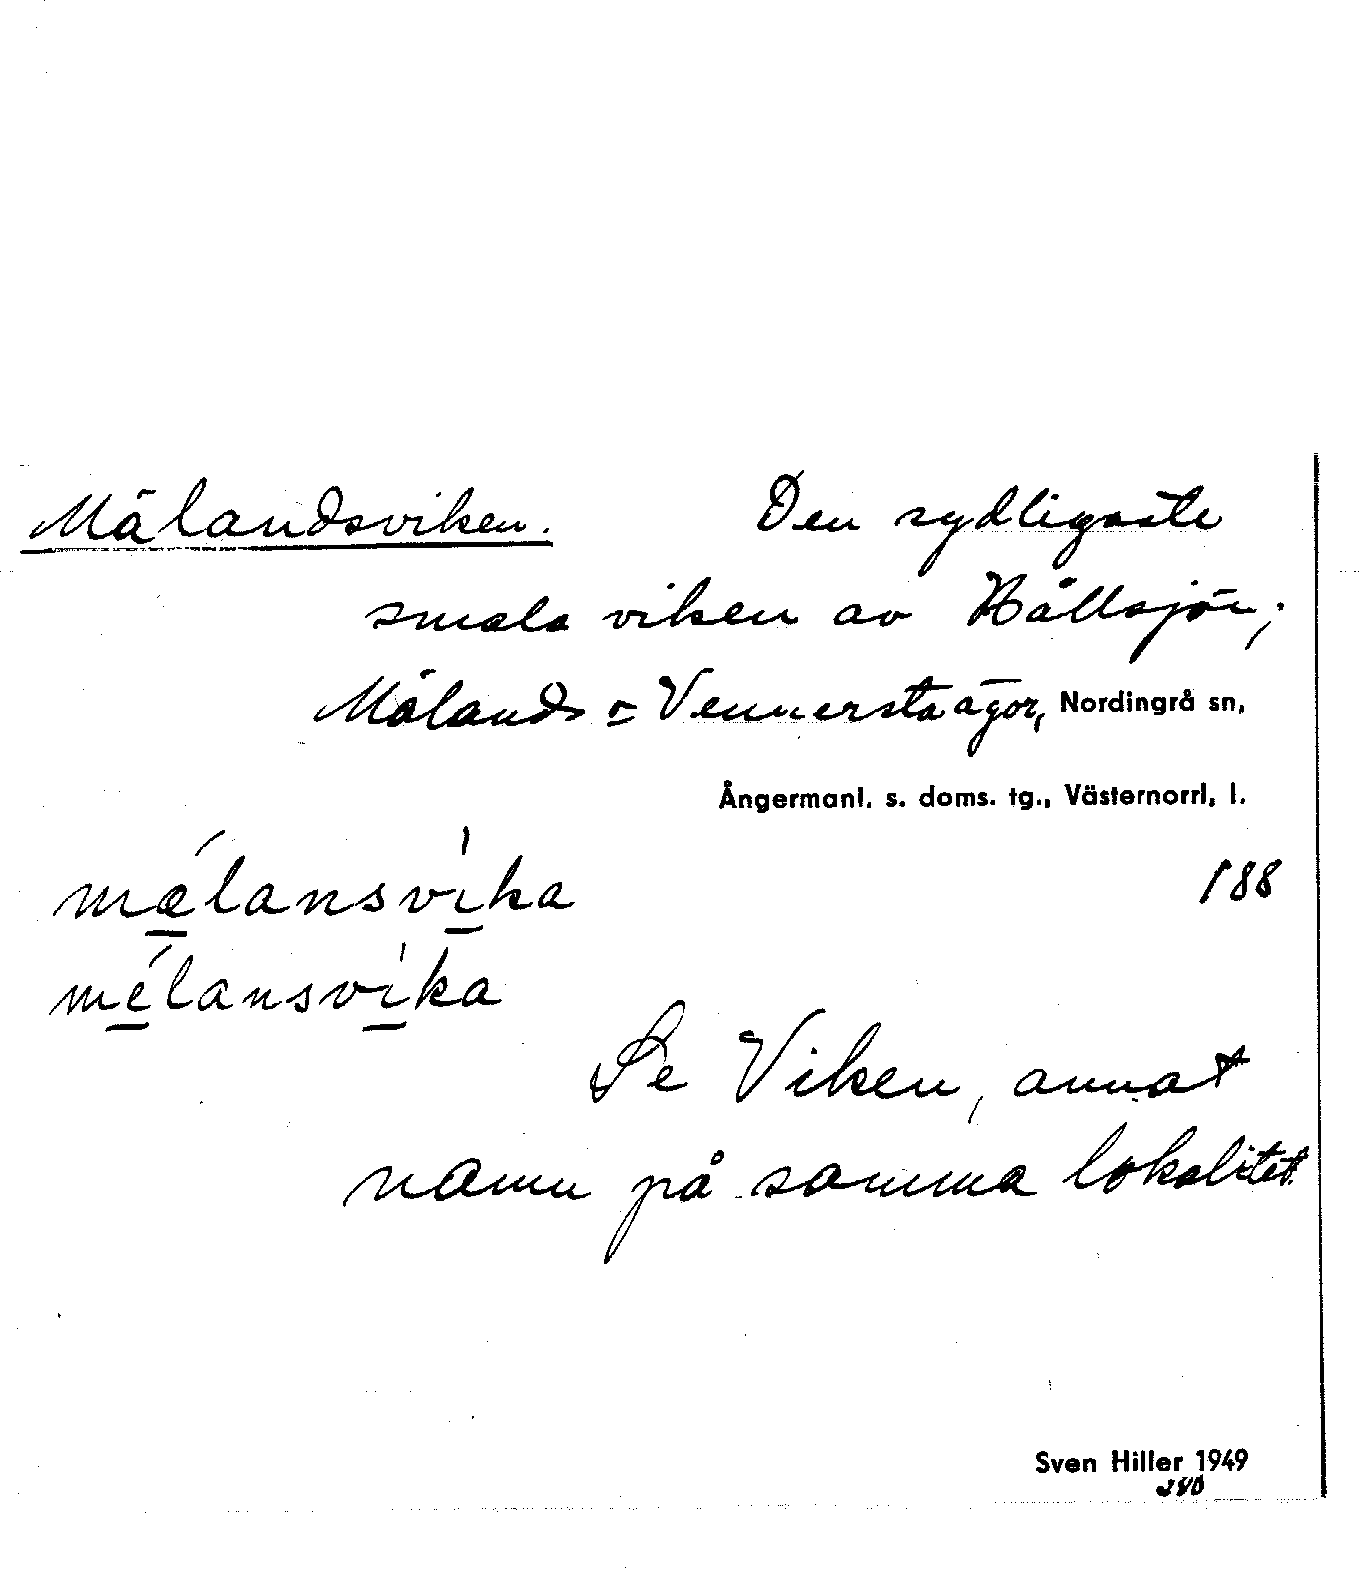 Mälandsviken. Den sydligaste
smala viken av Hällsjön;
Mälands o Vennersta ägor, Nordingrå sn,
Ångermanl. s. doms. tg., Västernorrl. l.
mǽlansvika 188
mélansvika
Se Viken, annat
namn på samma lokalitet.
Sven Hiller 1949